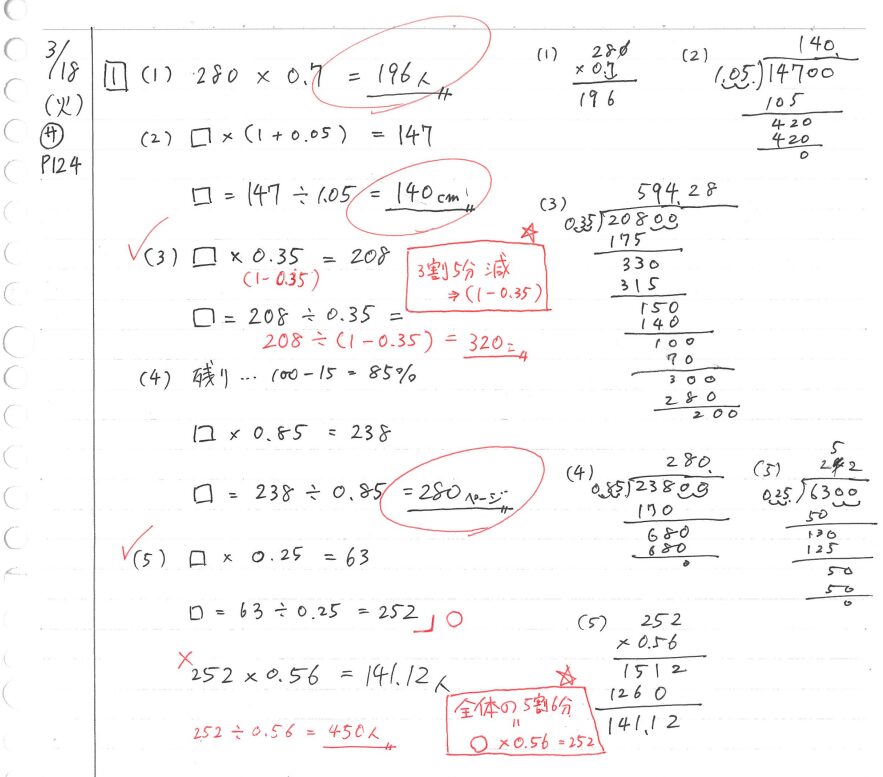 3/18
(火)
㋚
P124
1 (1) 280 × 0.7 = 196人
(2) □ × (1 + 0.05) = 147
□ = 147 ÷ 1.05 = 140cm
(3) □ × 0.35 = 208
(1-0.35)
□ = 208 ÷ 0.35 =
208 ÷ (1-0.35) = 320
☆
3割5分減
⇒ (1-0.35)
(4) 残り… 100-15 = 85%
□ × 0.85 = 238
□ = 238 ÷ 0.85 = 280ページ
(5) □ × 0.25 = 63
□ = 63 ÷ 0.25 = 252 ○
× 252 × 0.56 = 141.12人
252 ÷ 0.56 = 450人
☆
全体の5割6分
〃
○ × 0.56 = 252
(1) 280
× 0.7
196
(2) 140.
1.05.)14700
105
420
420
0
(3) 594.28
0.35)20800
175
330
315
150
140
100
70
300
280
200
(4) 280.
0.85)23800
170
680
680
0
(5) 5
2 2
0.25.)6300
50
130
125
50
50
0
(5) 252
× 0.56
1512
1260
141.12